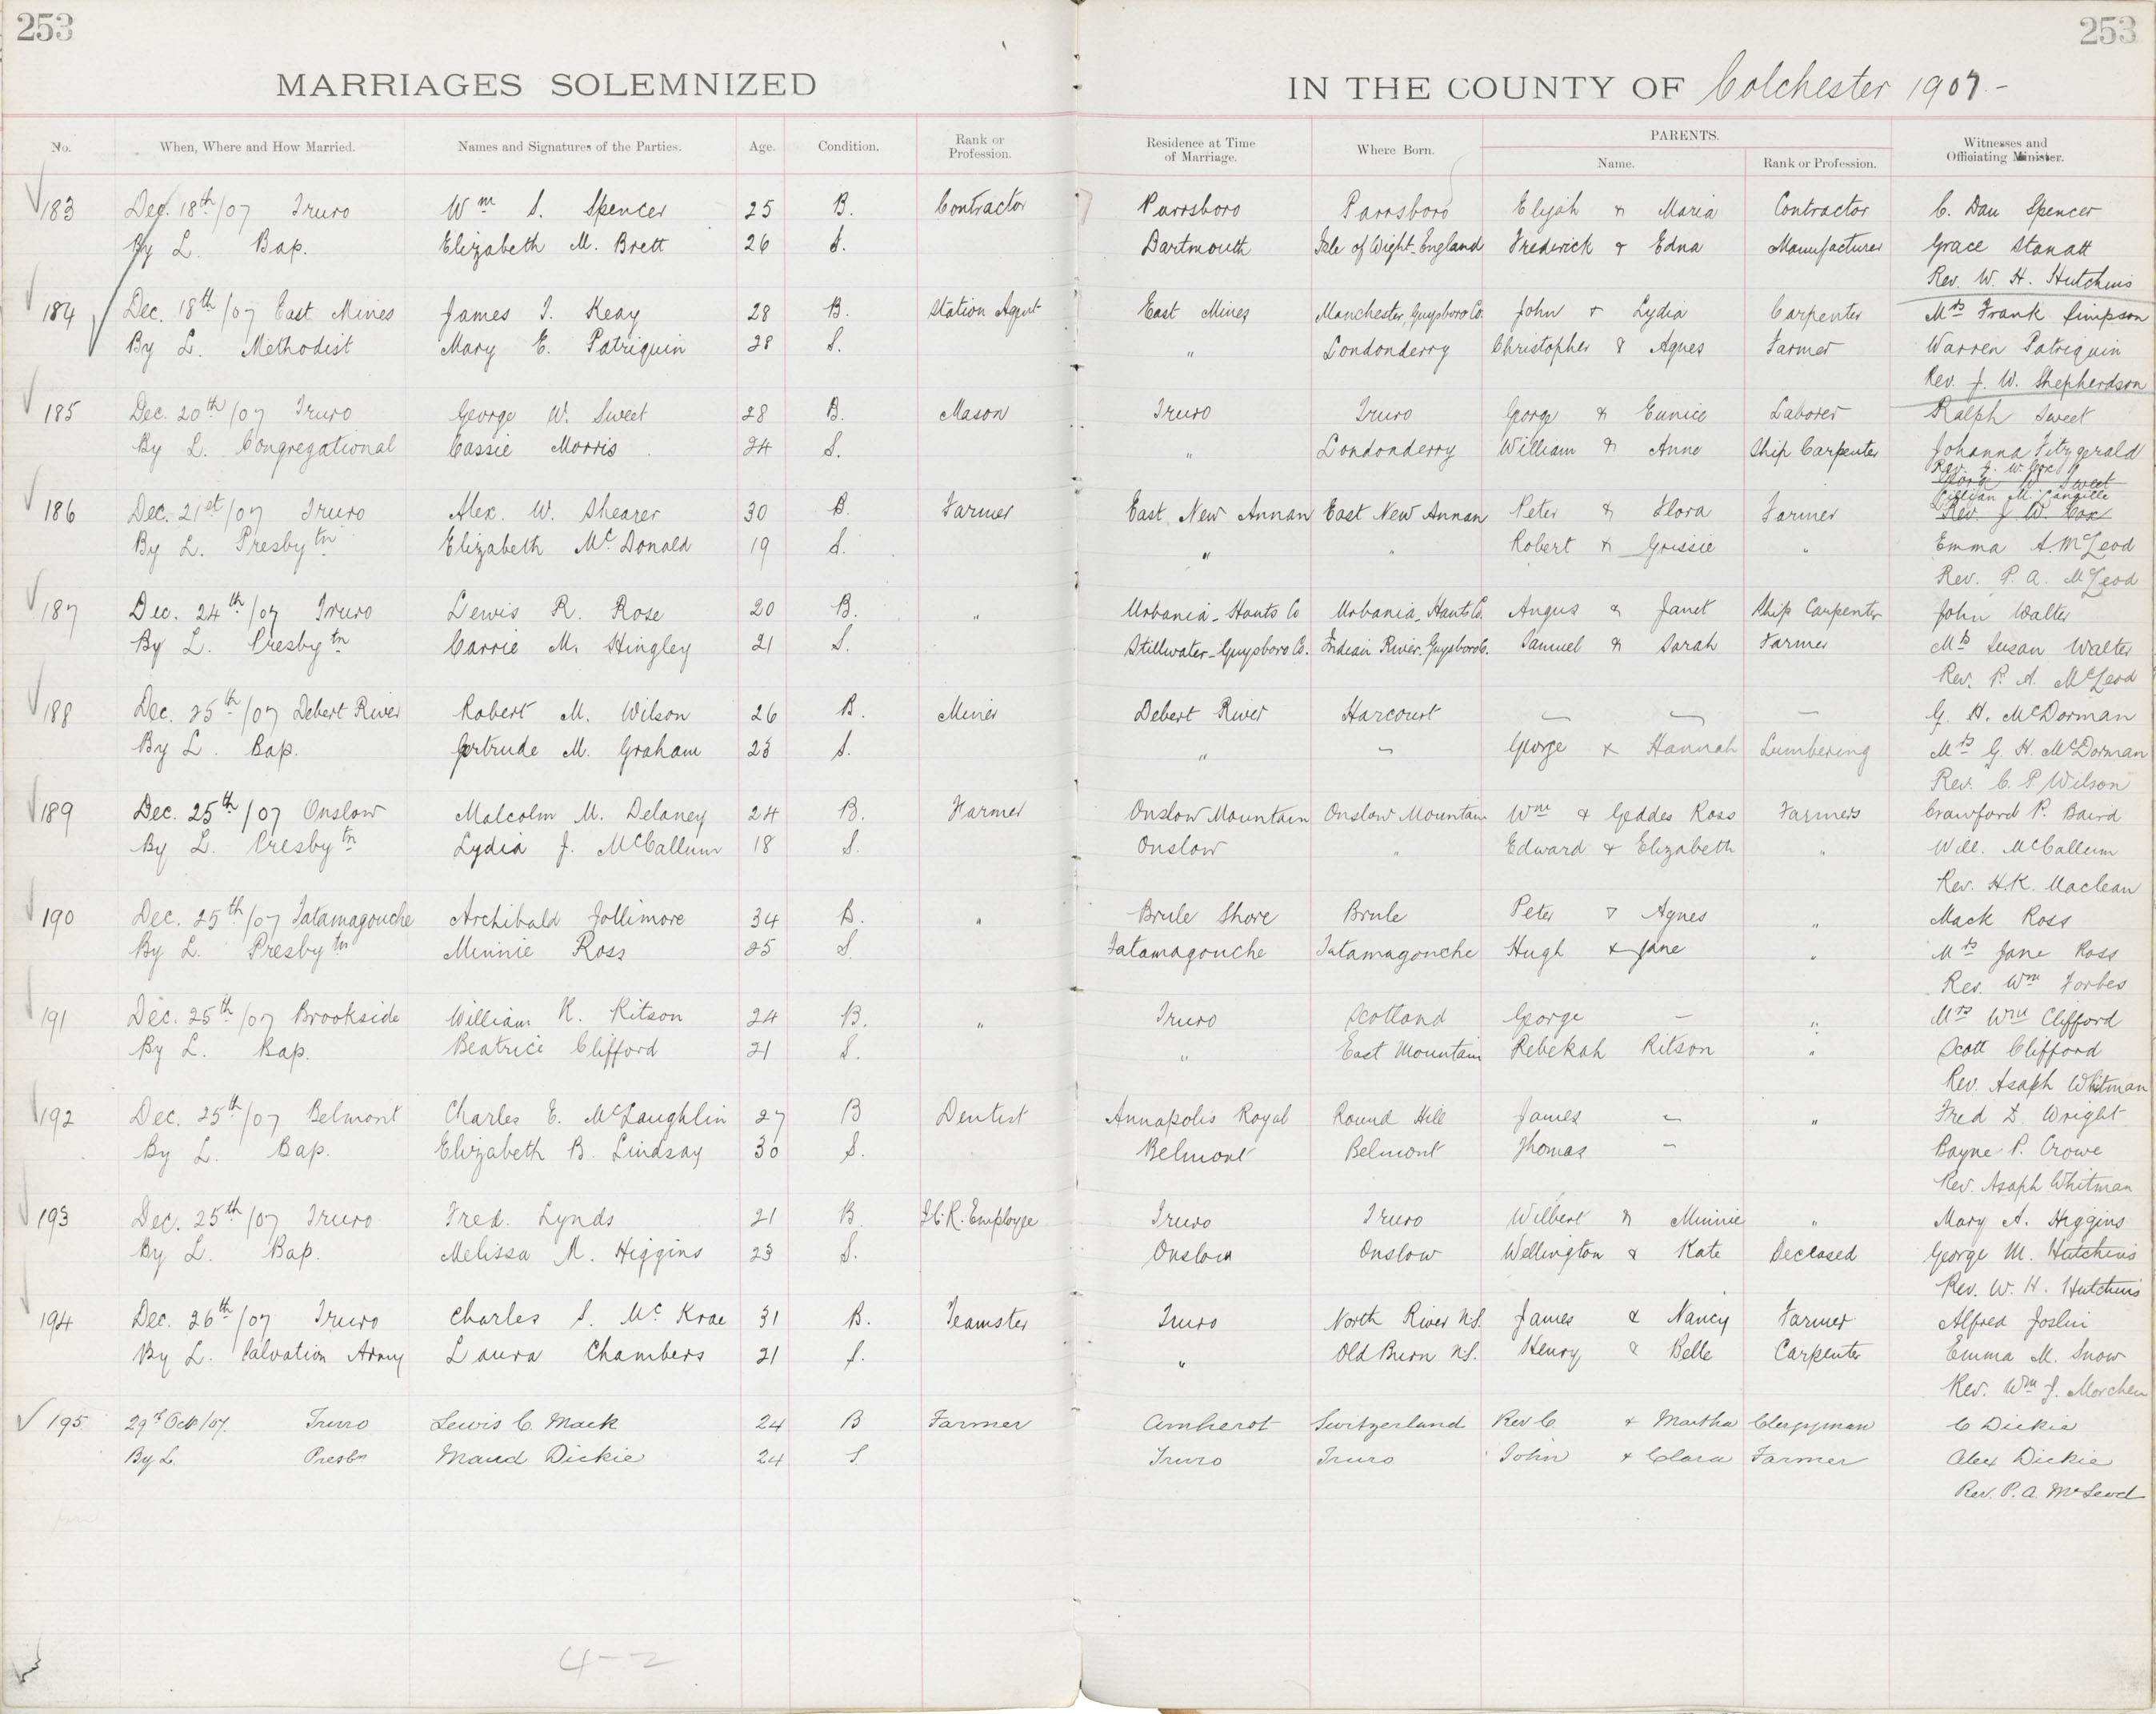 253 253
MARRIAGES SOLEMNIZED IN THE COUNTY OF Colchester 1907 -
PARENTS.
No. When, Where and How Married. Names and Signatures of the Parties. Age. Condition. Rank or Profession. Residence at Time of Marriage. Where Born. Name. Rank or Profession. Witnesses and Officiating Minister.
183 Dec. 18th/07 Truro Wm S. Spencer 25 B. Contractor Parrsboro Parrsboro Elijah & Maria Contractor C. Dan Spencer
By L. Bap. Elizabeth M. Brett 26 S. Dartmouth Isle of Wight-England Frederick & Edna Manufacturer Grace Stanatt
Rev. W. H. Hutchins
184 Dec. 18th/07 East Mines James T. Keay 28 B. Station Agent East Mines Manchester, Guysboro Co. John & Lydia Carpenter Mrs Frank Simpson
By L. Methodist Mary E. Patriquin 28 S. " Londonderry Christopher & Agnes Farmer Warren Patriquin
Rev. J. W. Shepherdson
185 Dec. 20th/07 Truro George W. Sweet 28 B. Mason Truro Truro George & Eunice Laborer Ralph Sweet
By L. Congregational Cassie Morris 24 S. " Londonderry William & Anne Ship Carpenter Johanna Fitzgerald
Rev. J. W. Cox
George W. Sweet
186 Dec. 21st/07 Truro Alex. W. Shearer 30 B. Farmer East New Annan East New Annan Peter & Flora Farmer Lillian M. Rev. J. W. Cox
By L. Presbytn Elizabeth McDonald 19 S. " " Robert & Grissie " Emma A. McLeod
Rev. P. A. McLeod
187 Dec. 24th/07 Truro Lewis R. Rose 20 B. " Urbania-Hants Co Urbania-Hants Co. Angus & Janet Ship Carpenter John Walter
By L. Presbytn Carrie M. Hingley 21 S. Stillwater-Guysboro Co. Indian River. Guysboro Co. Samuel & Sarah Farmer Mrs Susan Walter
Rev. P. A. McLeod
188 Dec. 25th/07 Debert River Robert M. Wilson 26 B. Miner Debert River Harcourt — — — G. H. McDorman
By L. Bap. Gertrude M. Graham 23 S. " - George & Hannah Lumbering Mrs G. H. McDorman
Rev. C. P. Wilson
189 Dec. 25th/07 Onslow Malcolm M. Delaney 24 B. Farmer Onslow Mountain Onslow Mountain Wm & Geddes Ross Farmers Crawford P. Baird
By L. Presbytn Lydia J. McCallum 18 S. Onslow " Edward & Elizabeth " Will. McCallum
Rev. H.K. Maclean
190 Dec. 25th/07 Tatamagouche Archibald Jollimore 34 B. " Brule Shore Brule Peter & Agnes " Mack Ross
By L. Presbytn Minnie Ross 25 S. Tatamagouche Tatamagouche Hugh & Jane " Mrs Jane Ross
Rev. Wm Forbes
191 Dec. 25th/07 Brookside William K. Kitson 24 B. " Truro Scotland George — " Mrs Wm Clifford
By L. Bap. Beatrice Clifford 21 S. " East Mountain Rebekah Kitson " Scott Clifford
Rev. Asaph Whitman
192 Dec. 25th/07 Belmont Charles E. McLaughlin 27 B Dentist Annapolis Royal Round Hill James - " Fred L. Wright
By L. Bap. Elizabeth B. Lindsay 30 S. Belmont Belmont Thomas - Payne P. Crowe
Rev. Asaph Whitman
193 Dec. 25th/07 Truro Fred. Lynds 21 B. I.C.R. Employee Truro Truro Wilbert & Minnie " Mary A. Higgins
By L. Bap. Melissa M. Higgins 23 S. Onslow Onslow Wellington & Kate Deceased George M. Hutchins
Rev. W. H. Hutchins
194 Dec. 26th/07 Truro Charles S. McKrae 31 B. Teamster Truro North River N.S. James & Nancy Farmer Alfred Joslin
By L. Salvation Army Laura Chambers 21 S. " Old Burn N.S. Henry & Belle Carpenter Emma M. Snow
Rev. Wm J. Morchen
195 29th Oct/07. Truro Lewis C. Mack 24 B Farmer Amherst Switzerland Rev C & Martha Clergyman C Dickie
By L Presbn Maud Dickie 24 S Truro Truro John & Clara Farmer Alex Dickie
Rev. P. A. McLeod
4-2